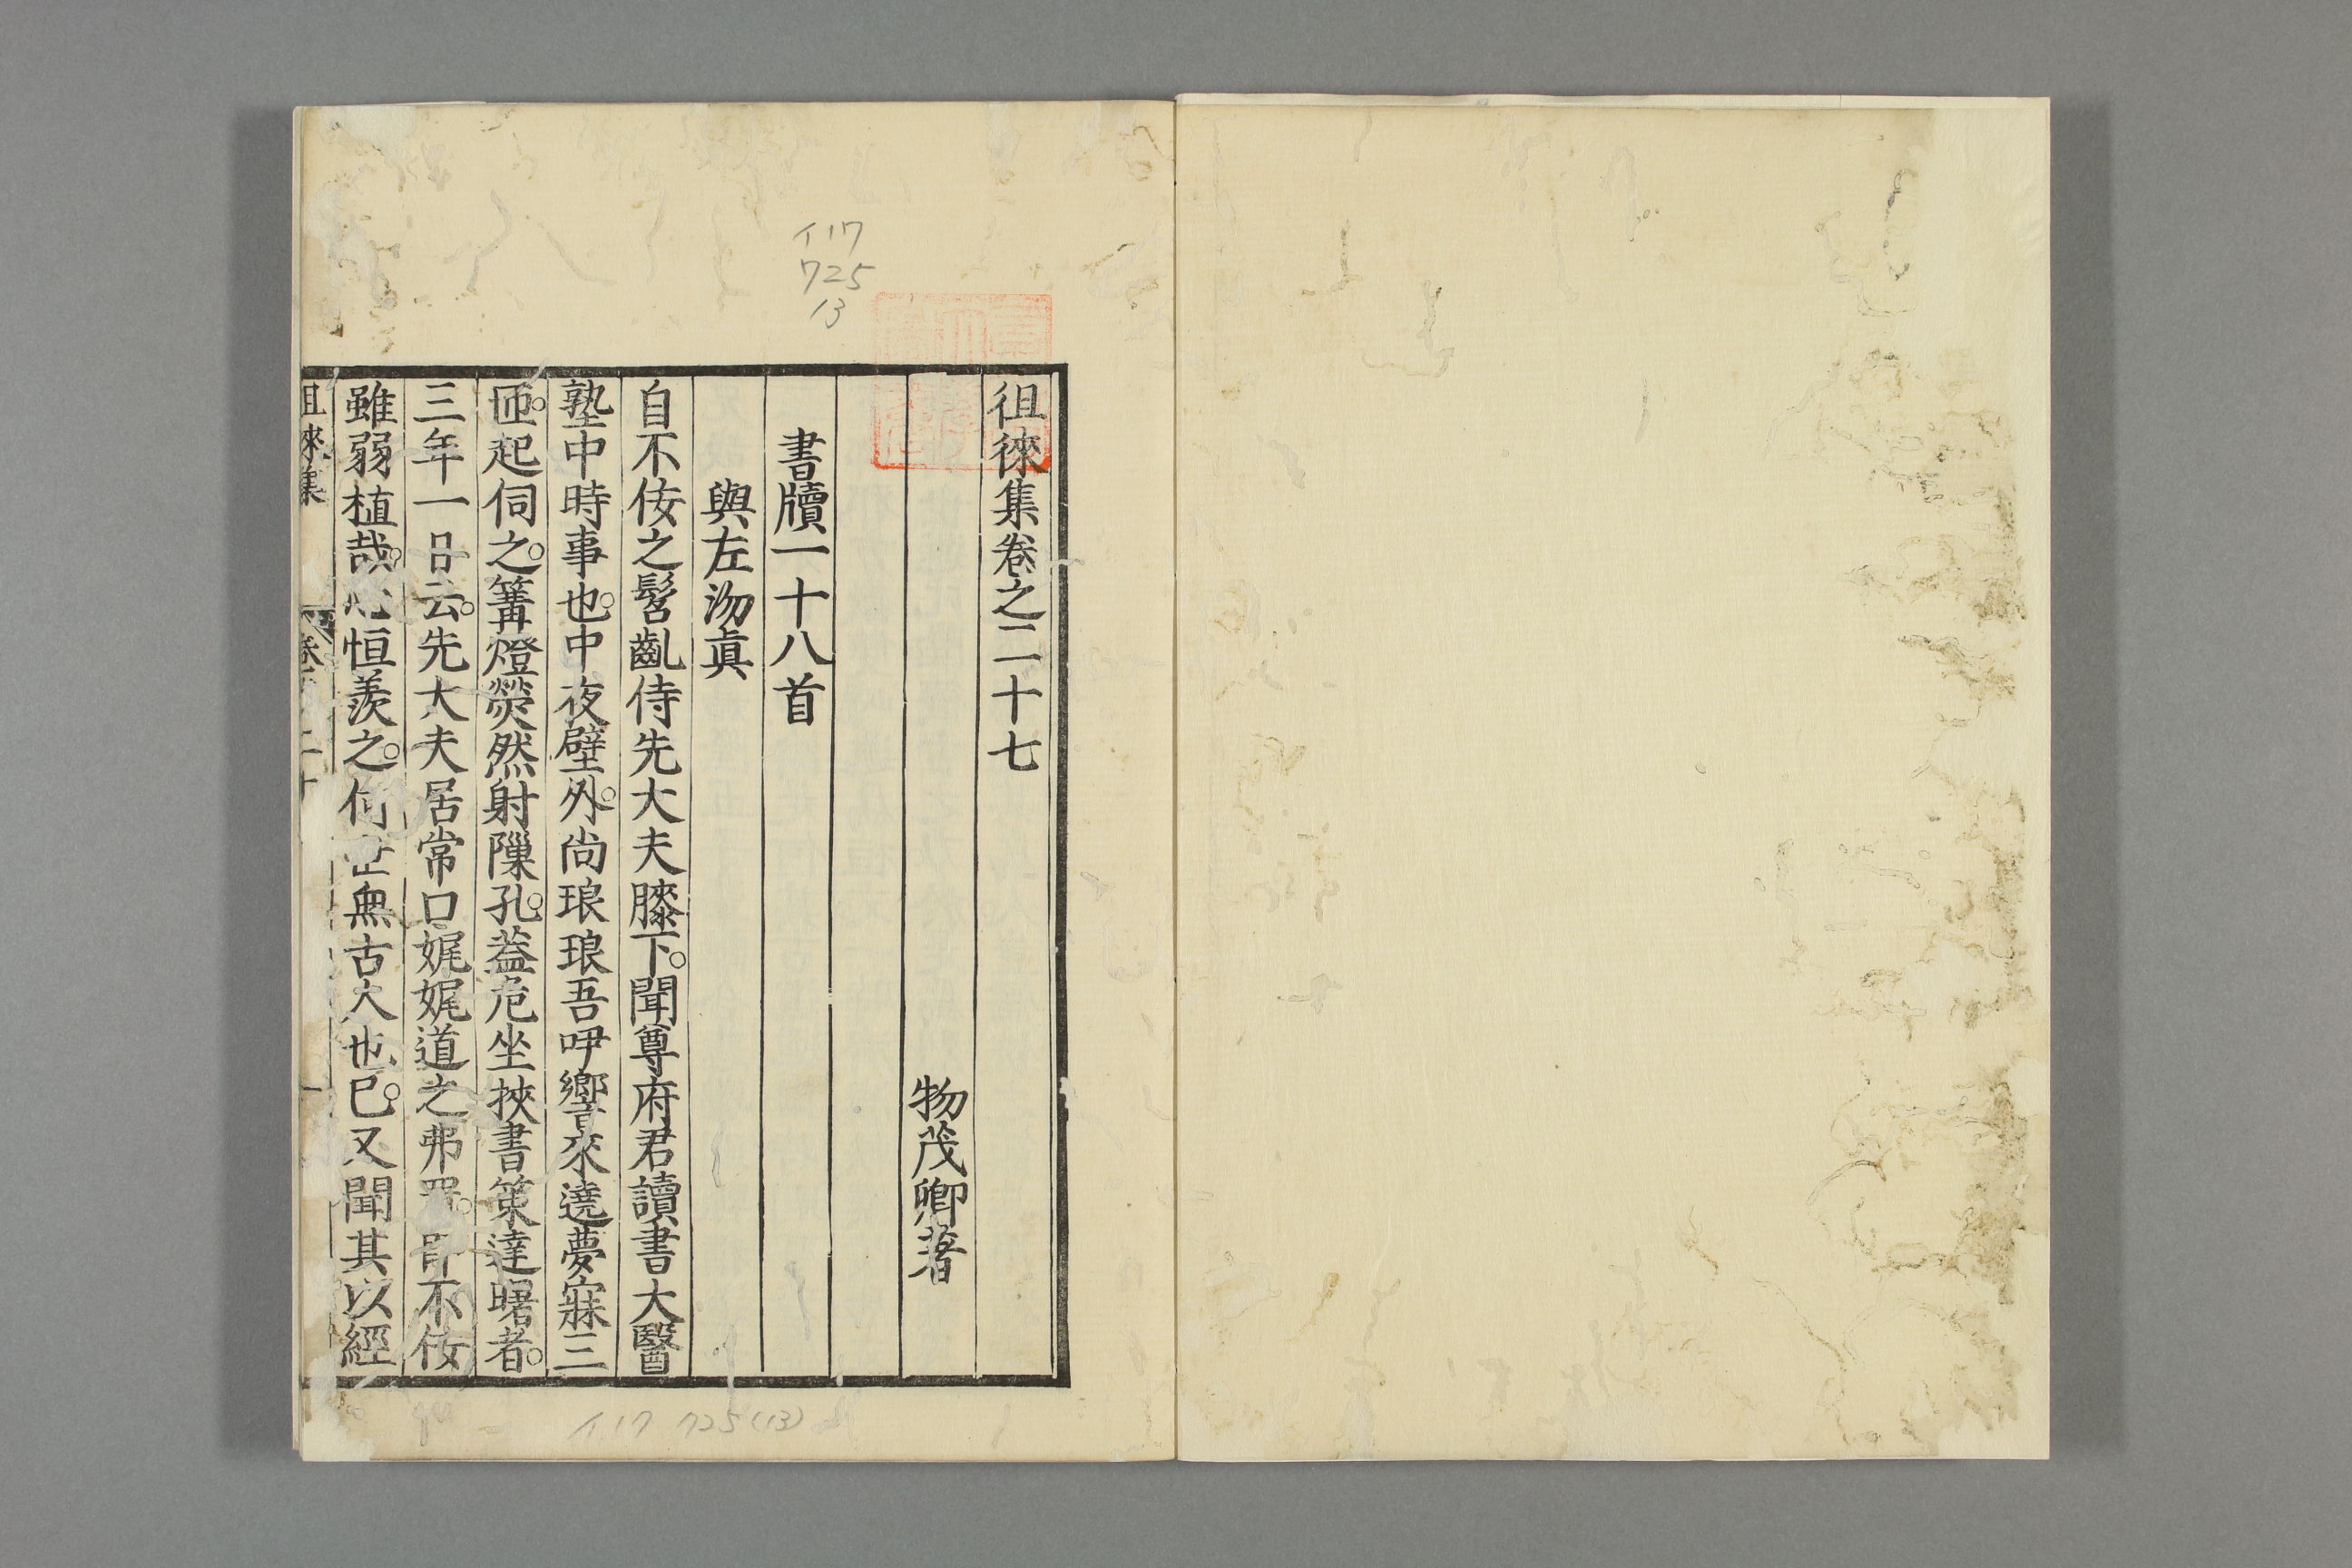 イ17
725
13
徂徠集卷之二十七
物茂卿著
書牘一十八首
與左沕眞
自不佞之髫齓侍先大夫膝下。聞尊府君讀書大醫
塾中時事也。中夜壁外。尚琅琅吾吚響來遶夢寐三
匝。起伺之。篝燈熒然射隟孔。蓋危坐挾書策達曙者。
三年一日云。先大夫居常口娓娓道之弗置。卽不佞
雖弱植哉。心恒羨之。何世無古人也。已又聞其以經
徂徠集
卷二十
一
イ17 725(13)